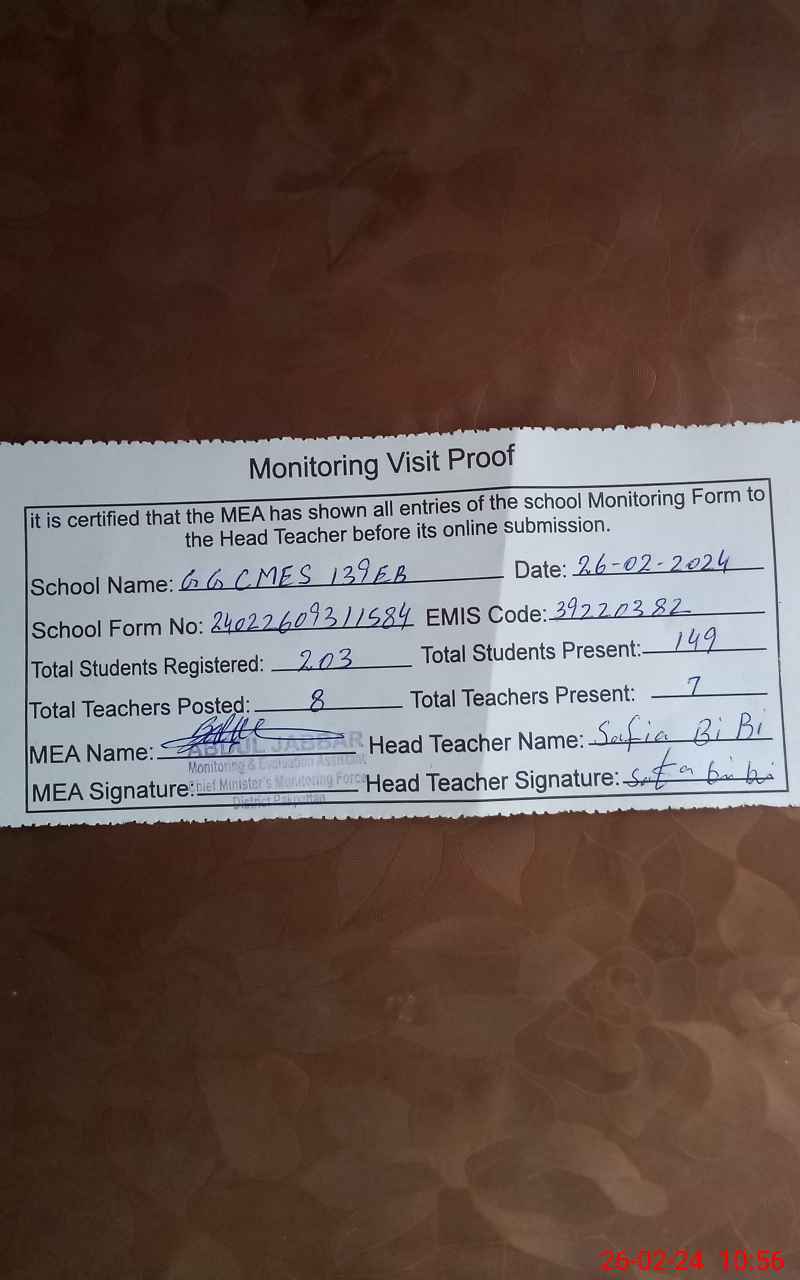 Monitoring Visit Proof
it is certified that the MEA has shown all entries of the school Monitoring Form to
the Head Teacher before its online submission.
School Name: GGCMES 139EB Date: 26-02-2024
School Form No: 24022609311584 EMIS Code: 39220382
Total Students Registered: 203 Total Students Present: 149
Total Teachers Posted: 8 Total Teachers Present: 7
MEA Name: ABDUL JABBAR Head Teacher Name: Safia Bi Bi
Monitoring & Evaluation Assistant
MEA Signature: Chief Minister's Monitoring Force Head Teacher Signature: Safia bi bi
District Pakpattan
26-02-24 10:56